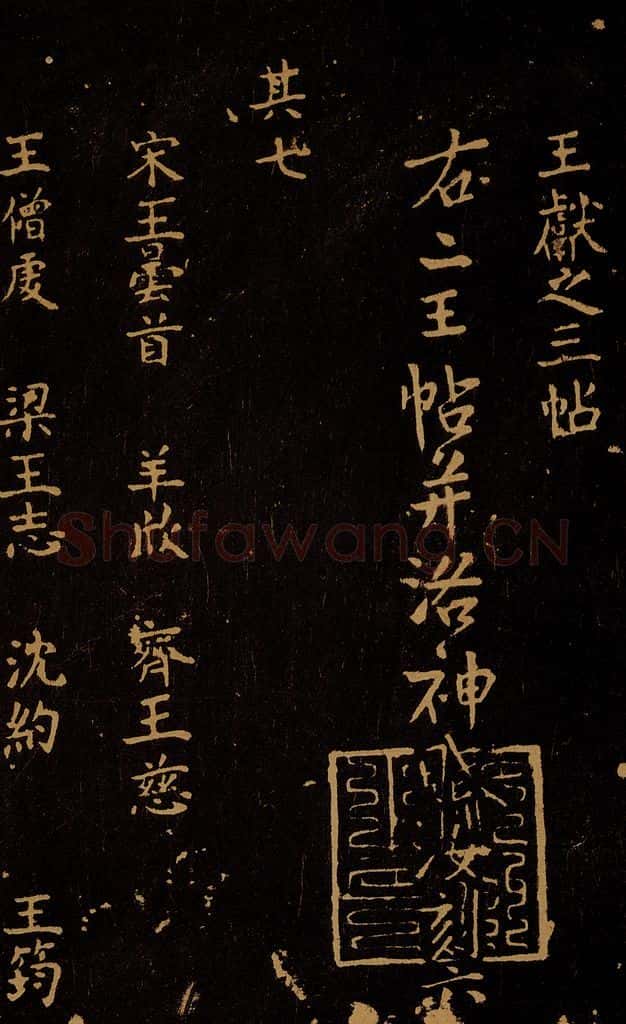 王獻之三帖
右二王帖并洛神
女刻六
其七
宋王曇首 羊欣 齊王慈
王僧虔 梁王志 沈約 王筠
Shufawang.CN